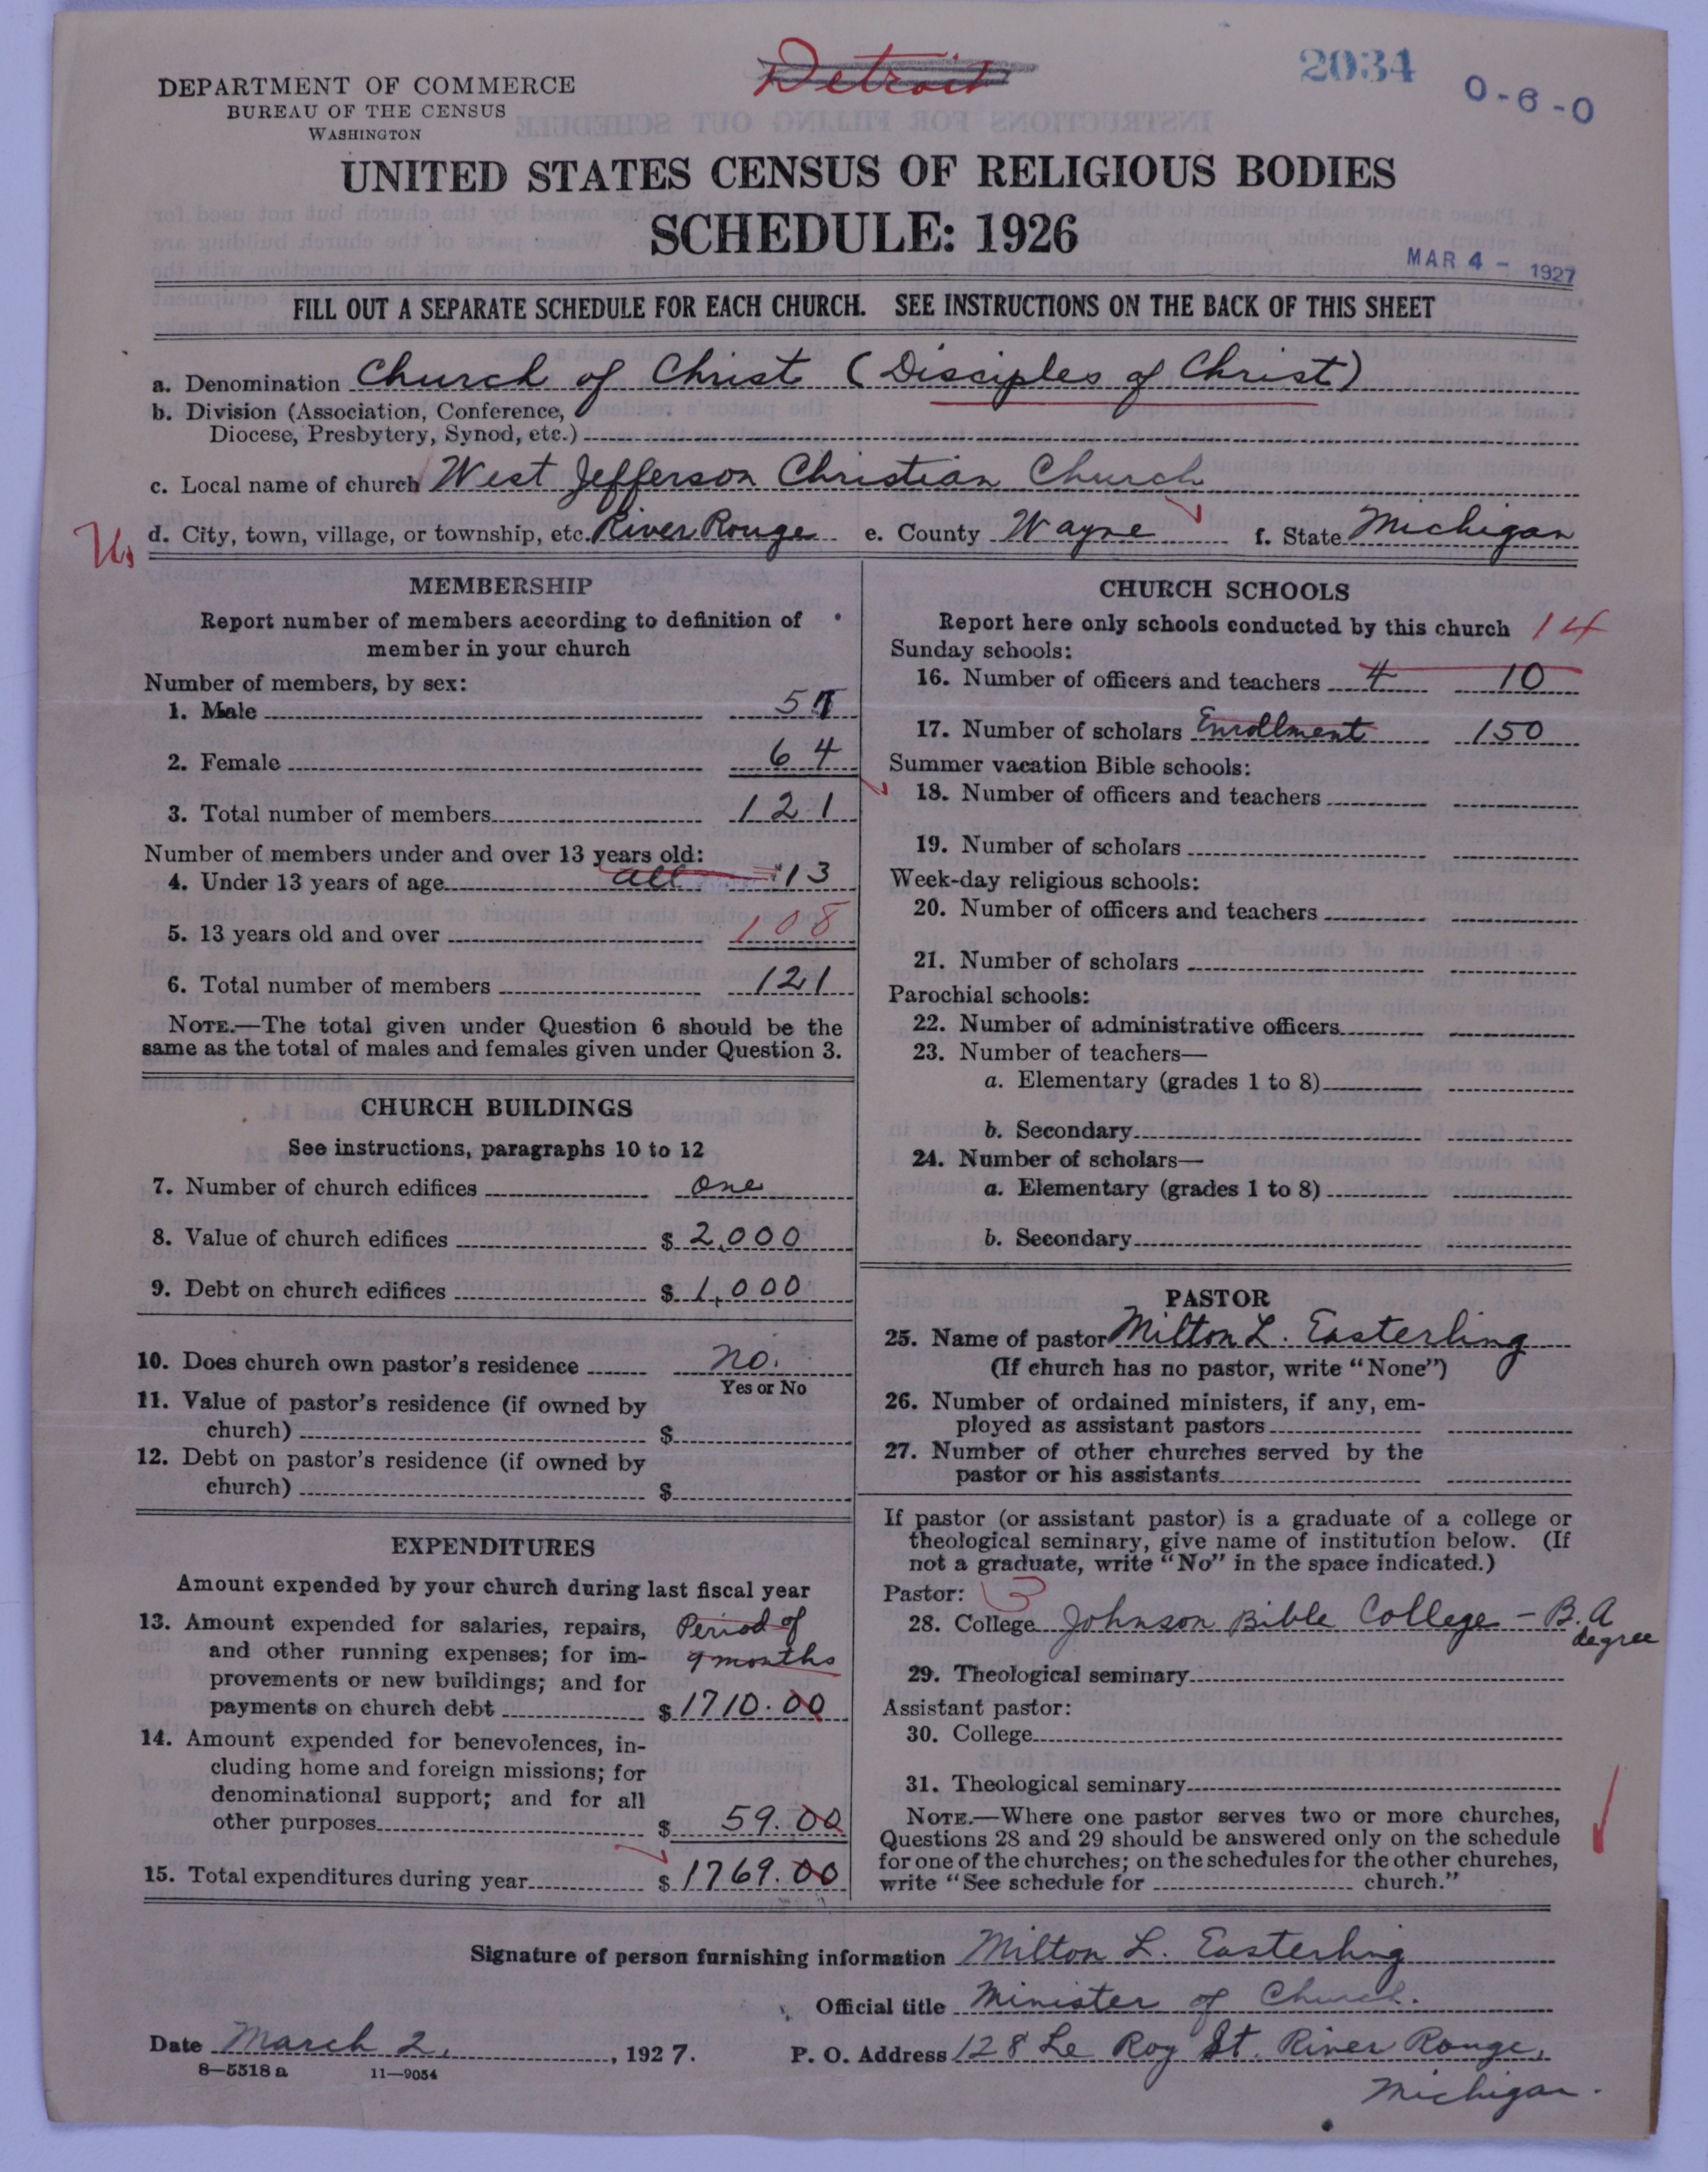 Detroit
2034
0-6-0
DEPARTMENT OF COMMERCE
BUREAU OF THE CENSUS
WASHINGTON
UNITED STATES CENSUS OF RELIGIOUS BODIES
SCHEDULE: 1926
MAR 4 - 1927
FILL OUT A SEPARATE SCHEDULE FOR EACH CHURCH. SEE INSTRUCTIONS ON THE BACK OF THIS SHEET
a. Denomination Church of Christ (Disciples of Christ)
b. Division (Association, Conference,
Diocese, Presbytery, Synod, etc.)
c. Local name of church West Jefferson Christian Church
d. City, town, village, or township, etc. River Rouge e. County Wayne f. State Michigan
MEMBERSHIP
Report number of members according to definition of
member in your church
Number of members, by sex:
1. Male 57
2. Female 64
3. Total number of members 121
Number of members under and over 13 years old:
4. Under 13 years of age all 13
5. 13 years old and over 108
6. Total number of members 121
NOTE.—The total given under Question 6 should be the
same as the total of males and females given under Question 3.
CHURCH BUILDINGS
See instructions, paragraphs 10 to 12
7. Number of church edifices one
8. Value of church edifices $ 2,000
9. Debt on church edifices $ 1,000
10. Does church own pastor's residence no.
Yes or No
11. Value of pastor's residence (if owned by
church) $
12. Debt on pastor's residence (if owned by
church) $
EXPENDITURES
Amount expended by your church during last fiscal year
13. Amount expended for salaries, repairs, Period of
and other running expenses; for im- 9 months
provements or new buildings; and for
payments on church debt $ 1710.00
14. Amount expended for benevolences, in-
cluding home and foreign missions; for
denominational support; and for all
other purposes $ 59.00
15. Total expenditures during year $ 1769.00
CHURCH SCHOOLS
Report here only schools conducted by this church 14
Sunday schools:
16. Number of officers and teachers 4 10
17. Number of scholars Enrollment 150
Summer vacation Bible schools:
18. Number of officers and teachers
19. Number of scholars
Week-day religious schools:
20. Number of officers and teachers
21. Number of scholars
Parochial schools:
22. Number of administrative officers
23. Number of teachers—
a. Elementary (grades 1 to 8)
b. Secondary
24. Number of scholars—
a. Elementary (grades 1 to 8)
b. Secondary
PASTOR
25. Name of pastor Milton L. Easterling
(If church has no pastor, write "None")
26. Number of ordained ministers, if any, em-
ployed as assistant pastors
27. Number of other churches served by the
pastor or his assistants
If pastor (or assistant pastor) is a graduate of a college or
theological seminary, give name of institution below. (If
not a graduate, write "No" in the space indicated.)
Pastor: 3
28. College Johnson Bible College - B.A
degree
29. Theological seminary
Assistant pastor:
30. College
31. Theological seminary
NOTE.—Where one pastor serves two or more churches,
Questions 28 and 29 should be answered only on the schedule
for one of the churches; on the schedules for the other churches,
write "See schedule for church."
Signature of person furnishing information Milton L. Easterling
Official title Minister of Church.
Date March 2, , 1927. P. O. Address 128 Le Roy St. River Rouge,
Michigan.
8—5518 a 11—9054